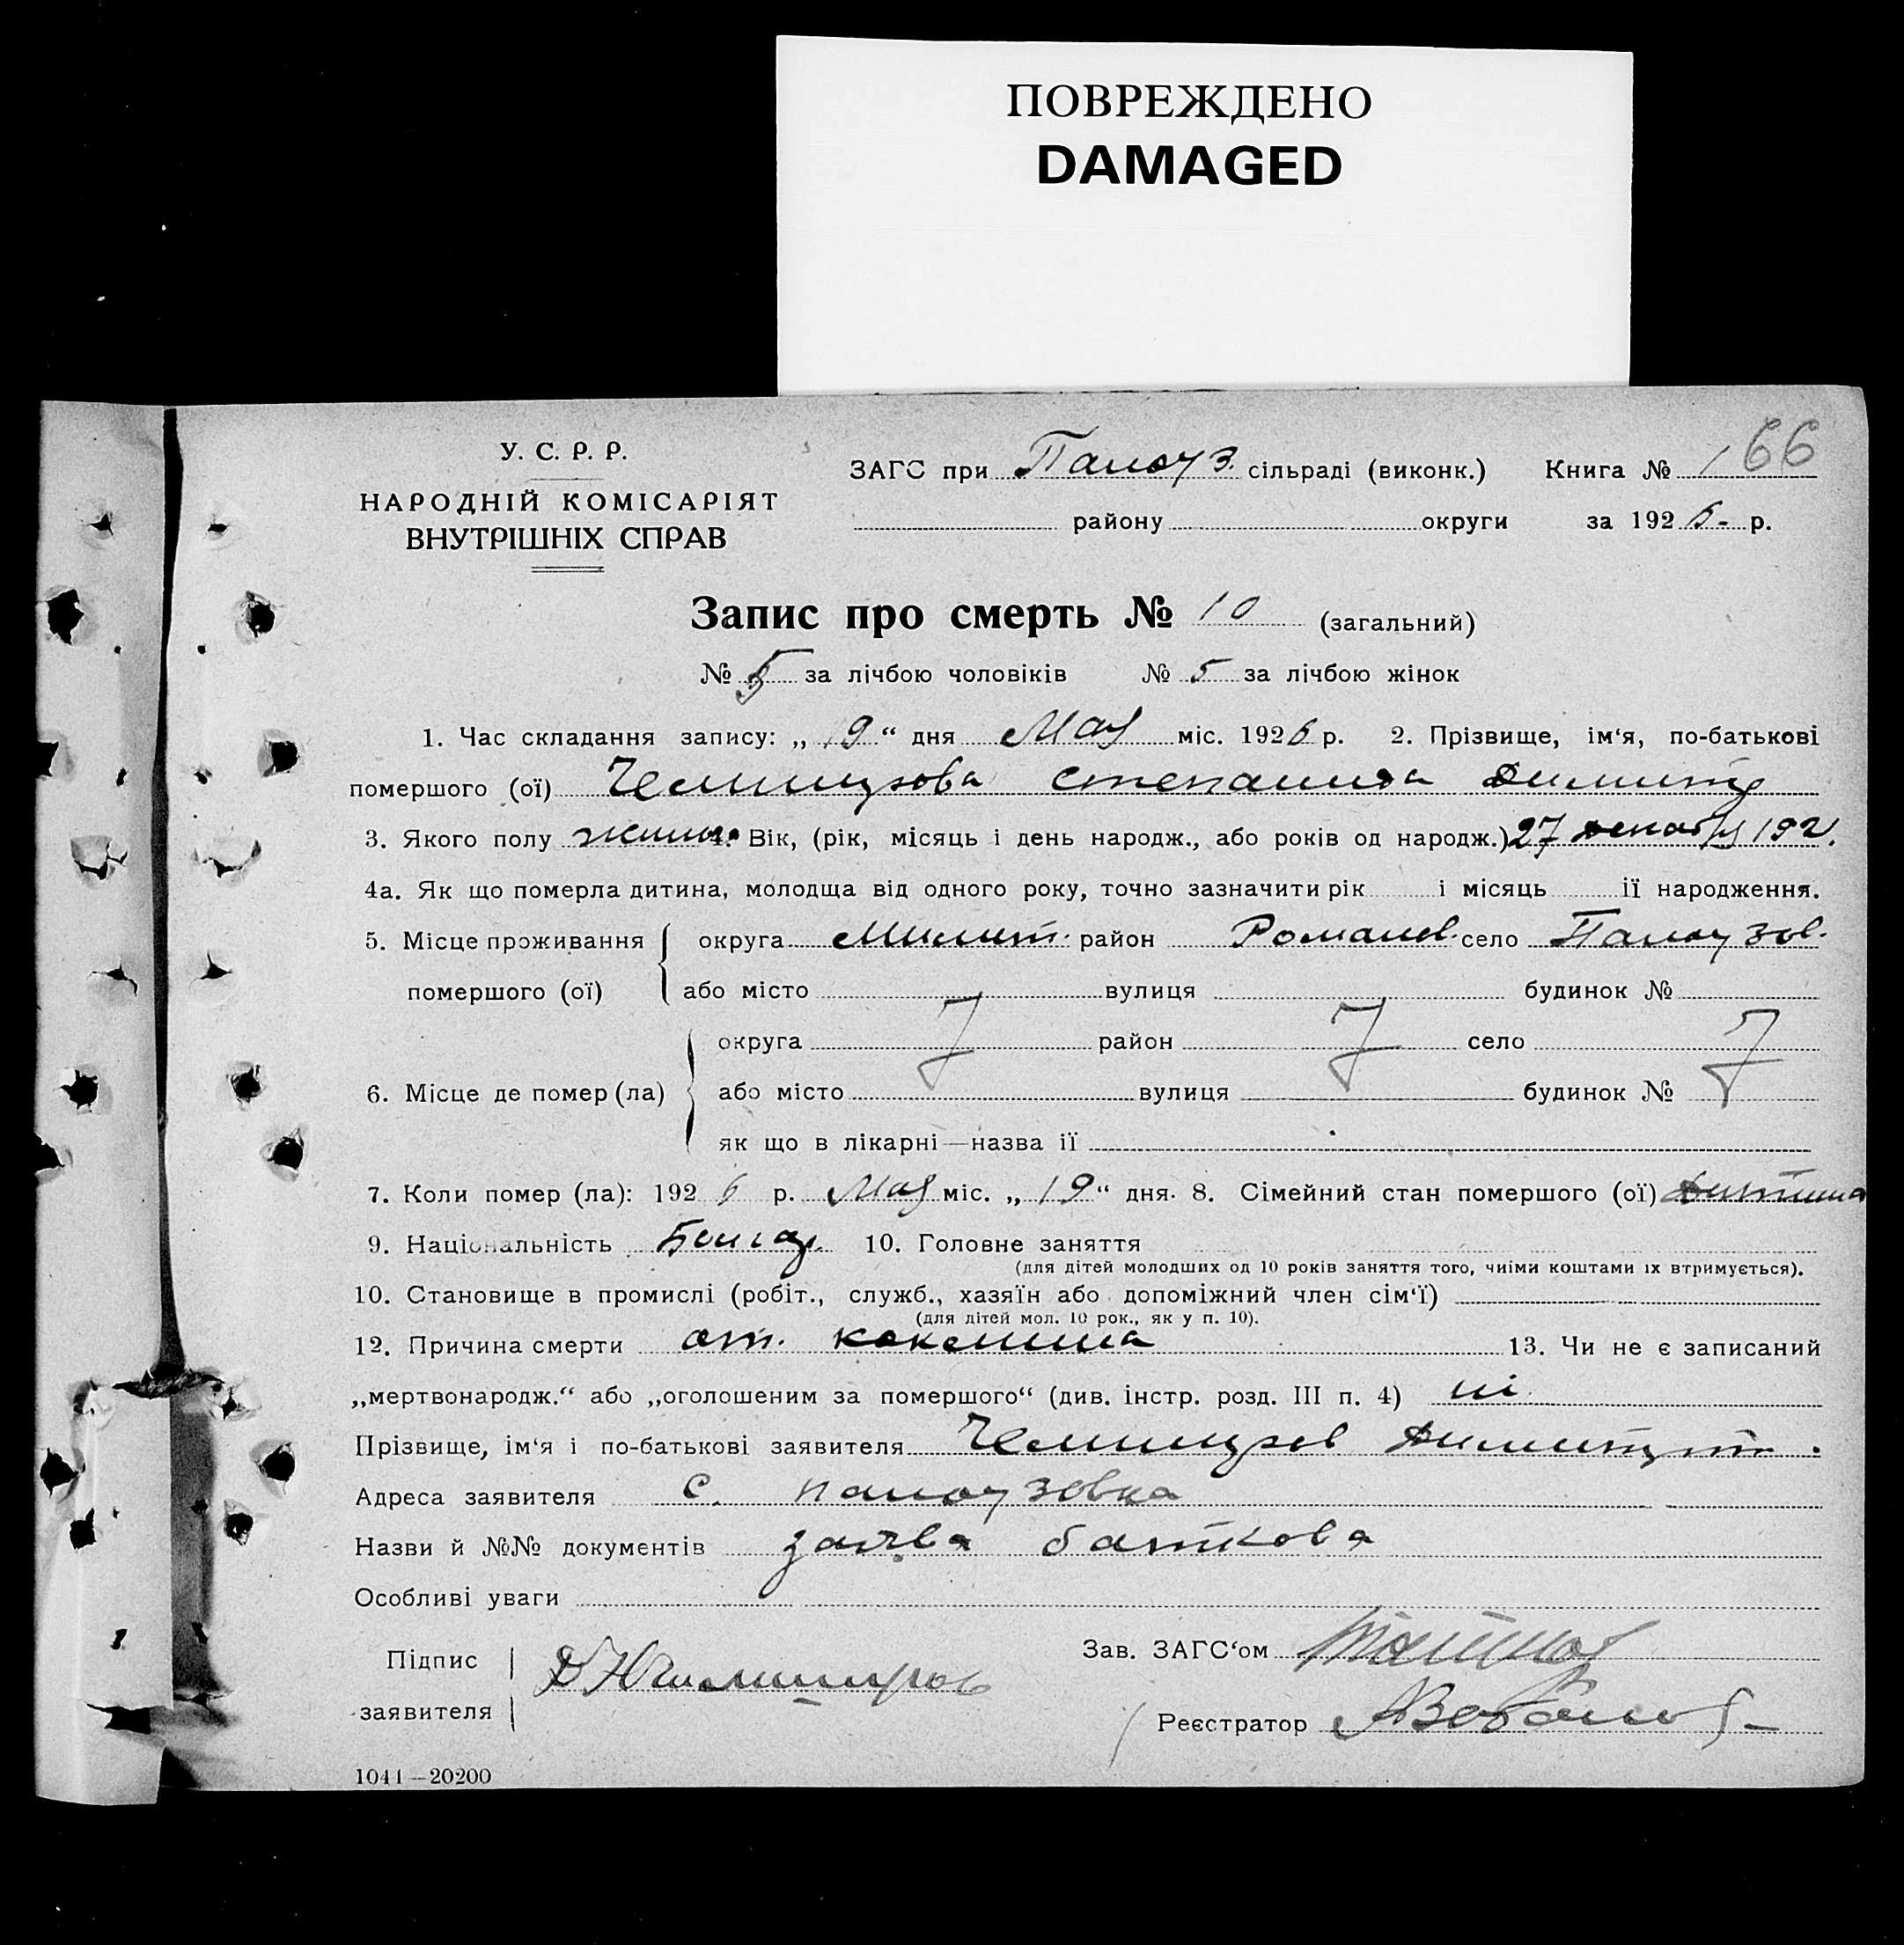 ПОВРЕЖДЕНО
DAMAGED
У. С. Р. Р.
НАРОДНІЙ КОМІСАРІЯТ
ВНУТРІШНІХ СПРАВ
ЗАГС при Паноуз. сільраді (виконк.) Книга № 1 66
району округи за 1926 р.
Запис про смерть № 10 (загальний)
№ 5 за лічбою чоловіків № 5 за лічбою жінок
1. Час складання запису: „19“ дня Мая міс. 1926 р. 2. Прізвище, ім‘я, по-батькові
помершого (ої) Степанида Димитр
3. Якого полу 4. Вік, (рік, місяць і день народж., або років од народж.) 27 декабря 192
4а. Як що померла дитина, молодща від одного року, точно зазначити рік і місяць її народження.
5. Місце проживання помершого (ої) округа Мелит. район Романов. село Паноузов.
або місто вулиця будинок №
6. Місце де помер (ла) округа район село
або місто вулиця будинок №
як що в лікарні—назва її
7. Коли помер (ла): 1926 р. Мая міс. „19“ дня. 8. Сімейний стан помершого (ої) дитина
9. Національність Болгар. 10. Головне заняття
(для дітей молодших од 10 років заняття того, чиїми коштами їх втримується).
10. Становище в промислі (робіт., служб., хазяїн або допоміжний член сім‘ї)
(для дітей мол. 10 рок., як у п. 10).
12. Причина смерти от. коклюша 13. Чи не є записаний
„мертвонародж.“ або „оголошеним за помершого“ (див. інстр. розд. III п. 4) ні
Прізвище, ім‘я і по-батькові заявителя
Адреса заявителя с. Паноузовка
Назви й №№ документів заява баткова
Особливі уваги
Підпис заявителя
Зав. ЗАГС‘ом
Реєстратор
1041—20200